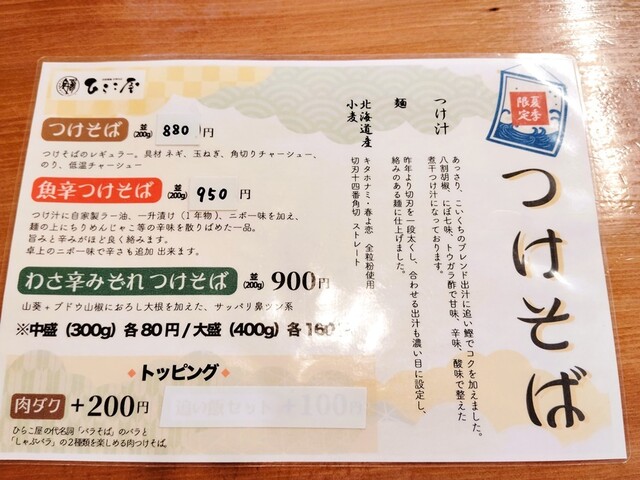 ひらこ屋
つけそば 並(200g) 880円
つけそばのレギュラー。具材 ネギ、玉ねぎ、角切りチャーシュー、
のり、低温チャーシュー
魚辛つけそば 並(200g) 950円
つけ汁に自家製ラー油、一升漬け(1年物)、ニボー味を加え、
麺の上にちりめんじゃこ等の辛味を散りばめた一品。
旨みと辛みがほど良く絡みます。
卓上のニボ一味で辛さも追加 出来ます。
わさ辛みぞれつけそば 並(200g) 900円
山葵+ブドウ山椒におろし大根を加えた、サッパリ鼻ツン系
※中盛(300g)各80円/大盛(400g)各160
トッピング
肉ダク +200円
ひらこ屋の代名詞「バラそば」のバラと
「しゃぶバラ」の2種類を楽しめる肉つけそば。
夏季
限定
つけそば
つけ汁
あっさり、こいくちのブレンド出汁に追い鰹でコクを加えました。
八割胡椒、にぼ七味、トウガラ酢で甘味、辛味、酸味で整えた
煮干つけ汁になっております。
麺
昨年より切刃を一段太くし、合わせる出汁も濃い目に設定し、
絡みのある麺に仕上げました。
北海道産
小麦
キタホナミ・春よ恋 全粒粉使用
切刃十四番角切 ストレート